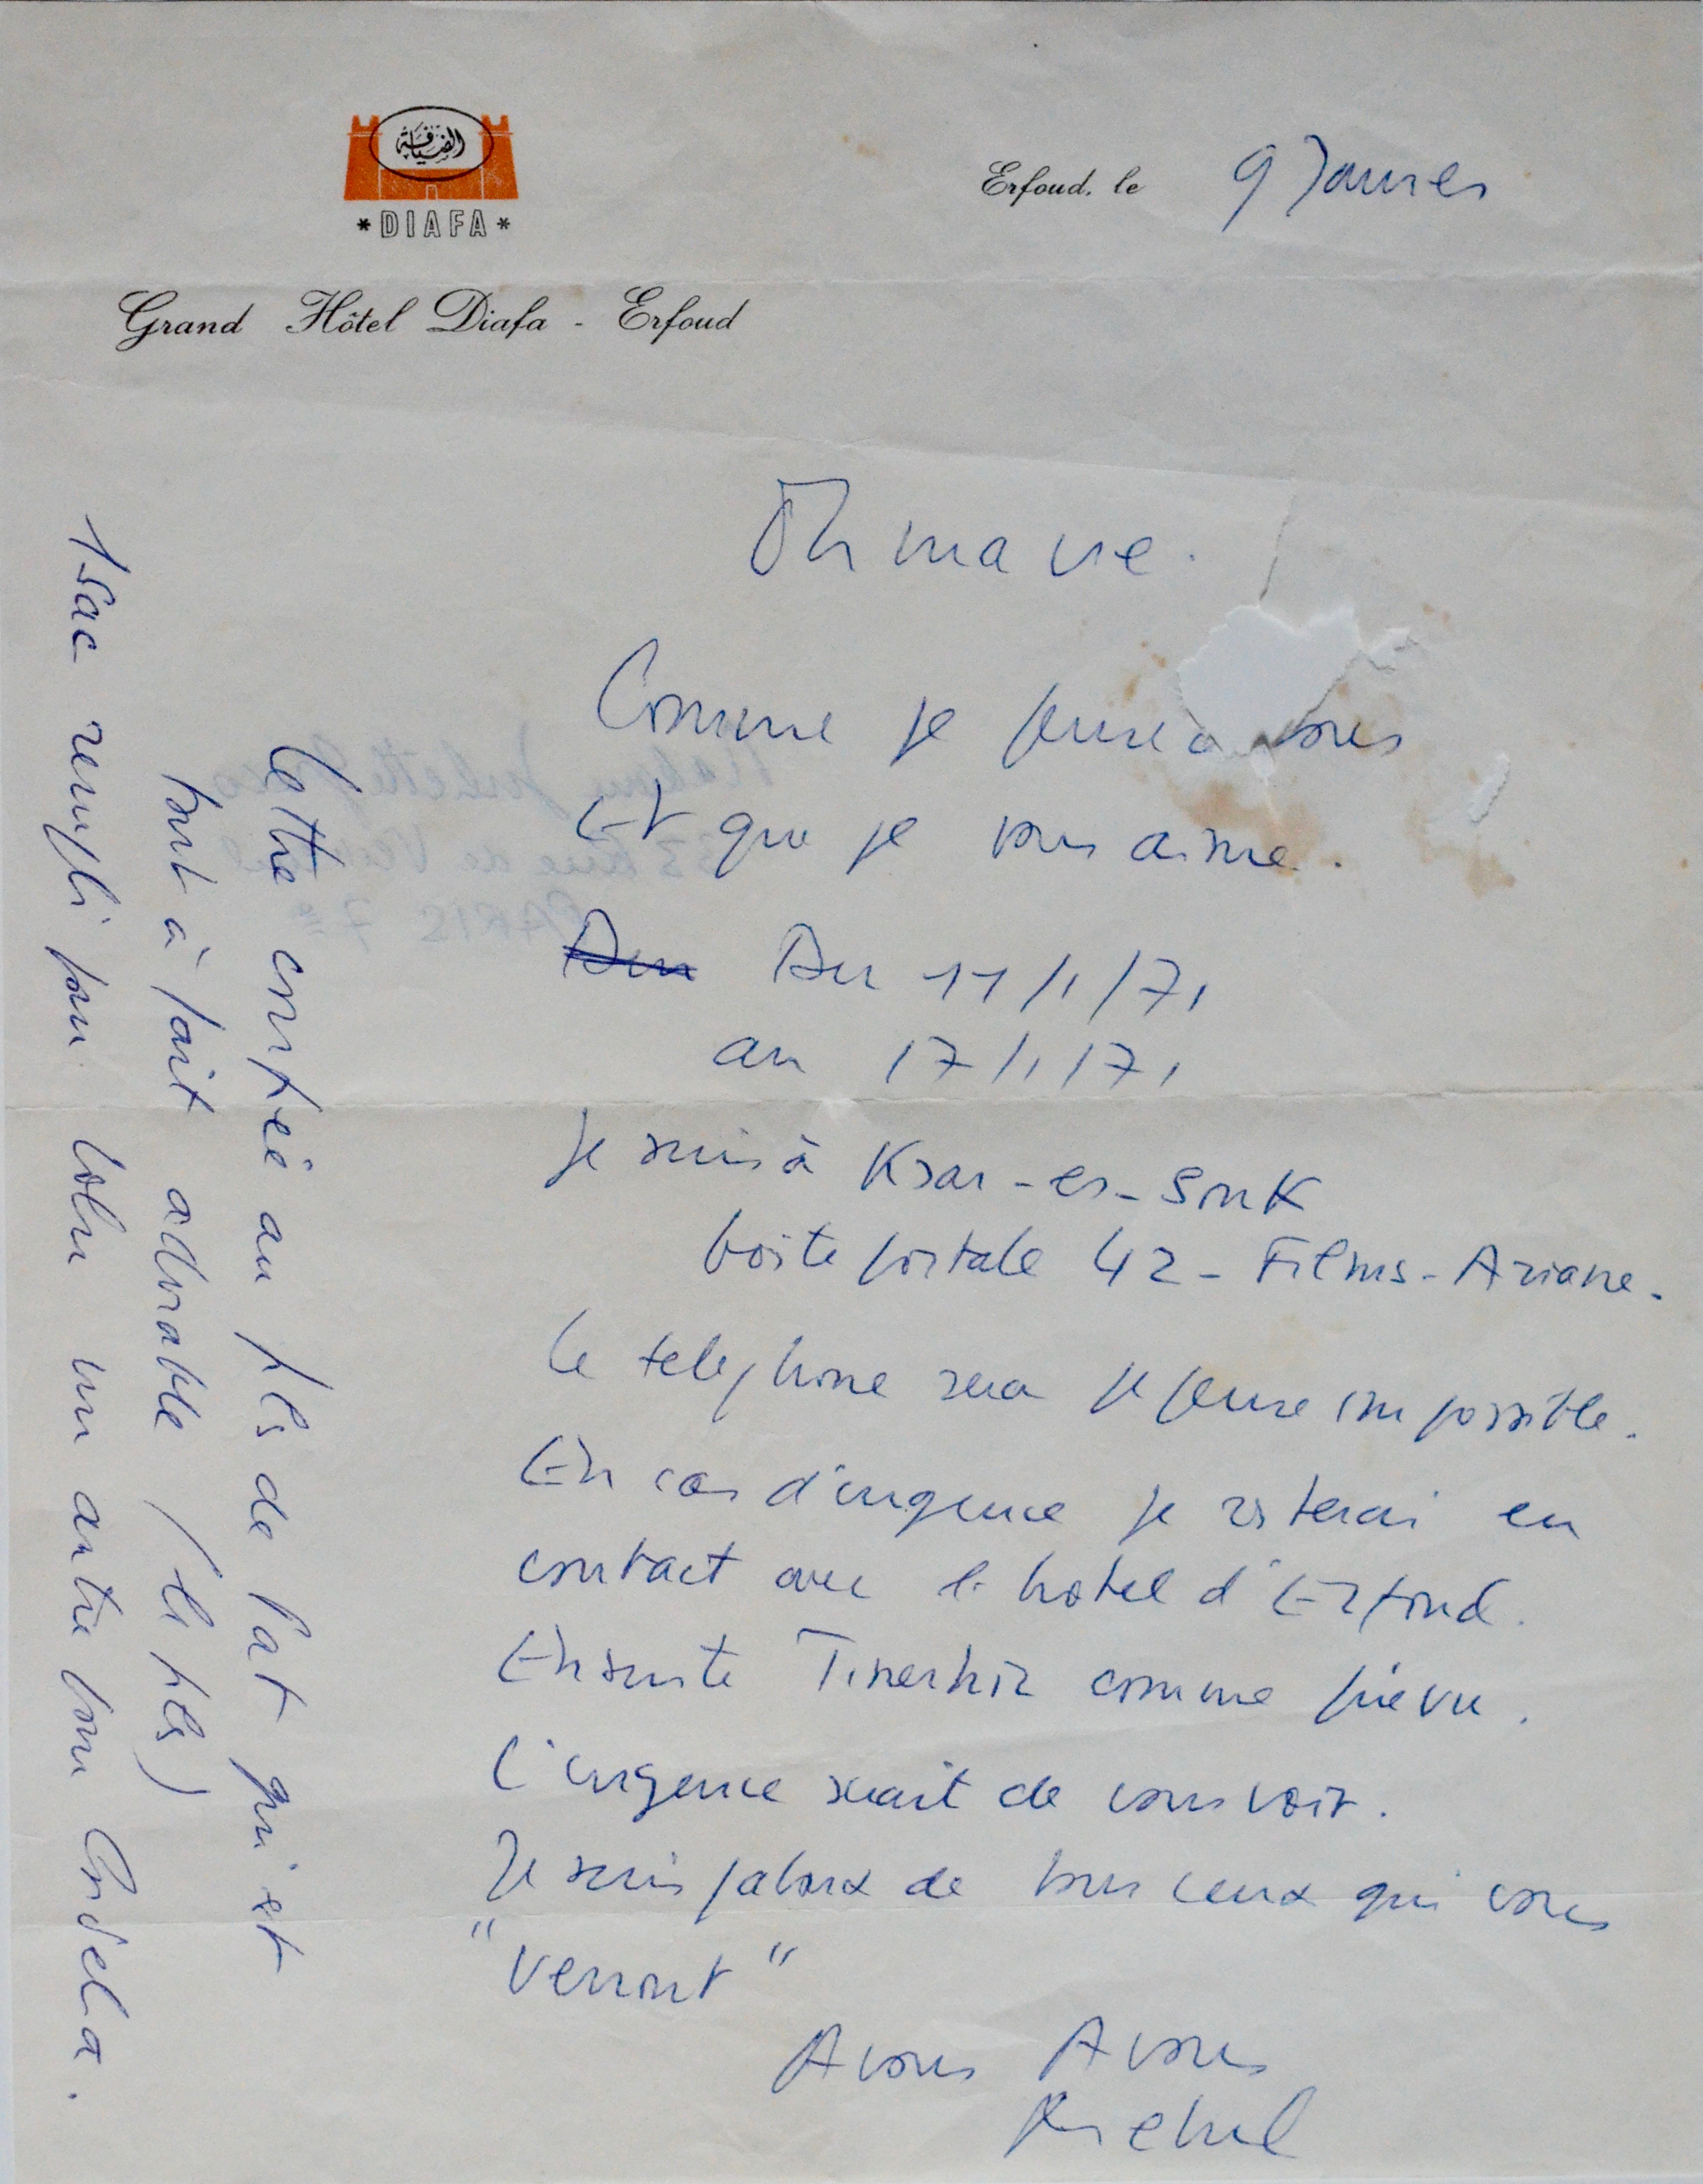 الضيافة
* DIAFA *
Grand Hôtel Diafa - Erfoud
Erfoud, le 9 Janvier
Oh ma vie.
Comme je pense à vous
Et que je vous aime.
Du Du 11/1/71
au 17/1/71
Je suis à Ksar-es-Souk
boite postale 42 - Films-Ariane.
Le telephone sera je pense impossible.
En cas d'urgence je resterai en
contact avec l'hotel d'Erfoud.
Ensuite Tinerhir comme prévu.
L'urgence serait de vous voir.
Je suis jaloux de tous ceux qui vous
"verront"
A vous A vous
Michel
Lettre confiée au fils de Pat qui est
tout à fait adorable (le fils)
1 sac rempli pour Lolu un autre pour Cordelia.
Madame Juliette Gréco
33 Rue de Verneuil
PARIS 7e